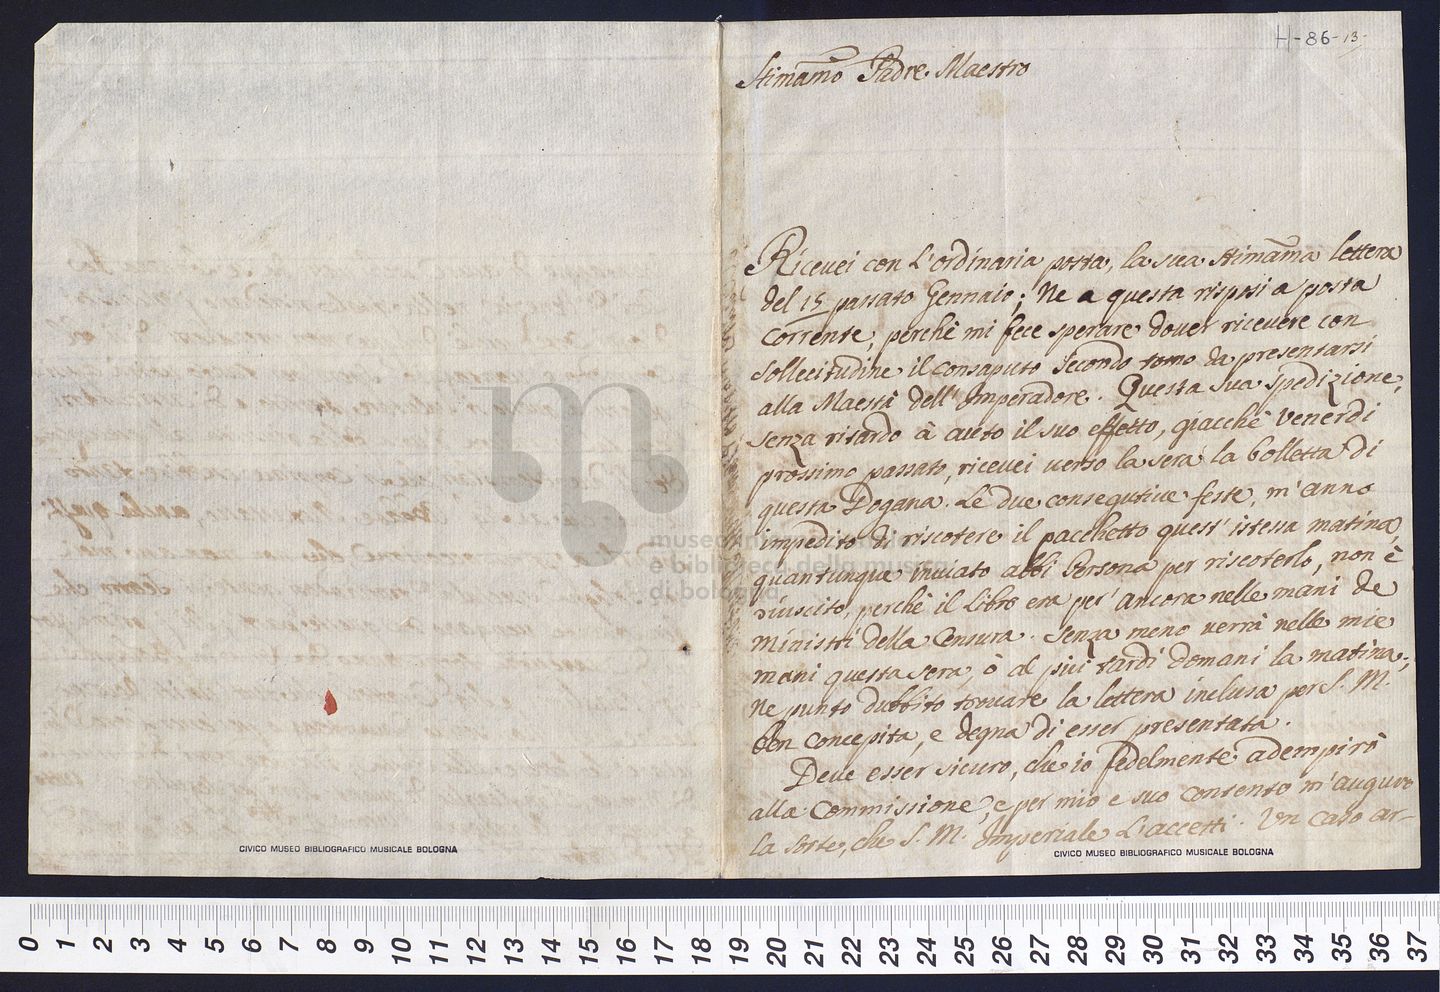 H-86-13-
Stimamo Padre Maestro
Ricevei con L'ordinaria posta, la sua stimama lettera
del 15 passato Gennaio; Ne a questa risposi a posta
corrente, perchè mi fece sperare dover ricevere con
sollecitudine il consaputo secondo tomo da presentarsi
alla Maestà dell'Imperadore. Questa sua spedizione,
senza ritardo à auto il suo effetto, giacchè Venerdi
prossimo passato, ricevei verso la sera la bolletta di
questa Dogana. Le due consegutive feste, m'anno
impedito di riscotere il pacchetto quest'istessa matina,
quantunque inviato abbi Persona per riscoterlo, non è
riuscito, perchè il Libro era per'ancora nelle mani de
Ministri della Censura. Senza meno verrà nelle mie
mani questa sera, ò al piui tardi domani la matina;
Ne punto dubbito trovare la lettera inclusa per S. M.
ben concepita, e degna di esser presentata.
Deve esser sicuro, che io fedelmente adempirò
alla commissione, e per mio e suo contento m'auguro
la sorte, che S. M. Imperiale L'accetti. Un caso ar-
museo internazionale
e biblioteca della musica
di bologna
CIVICO MUSEO BIBLIOGRAFICO MUSICALE BOLOGNA
CIVICO MUSEO BIBLIOGRAFICO MUSICALE BOLOGNA
0 1 2 3 4 5 6 7 8 9 10 11 12 13 14 15 16 17 18 19 20 21 22 23 24 25 26 27 28 29 30 31 32 33 34 35 36 37